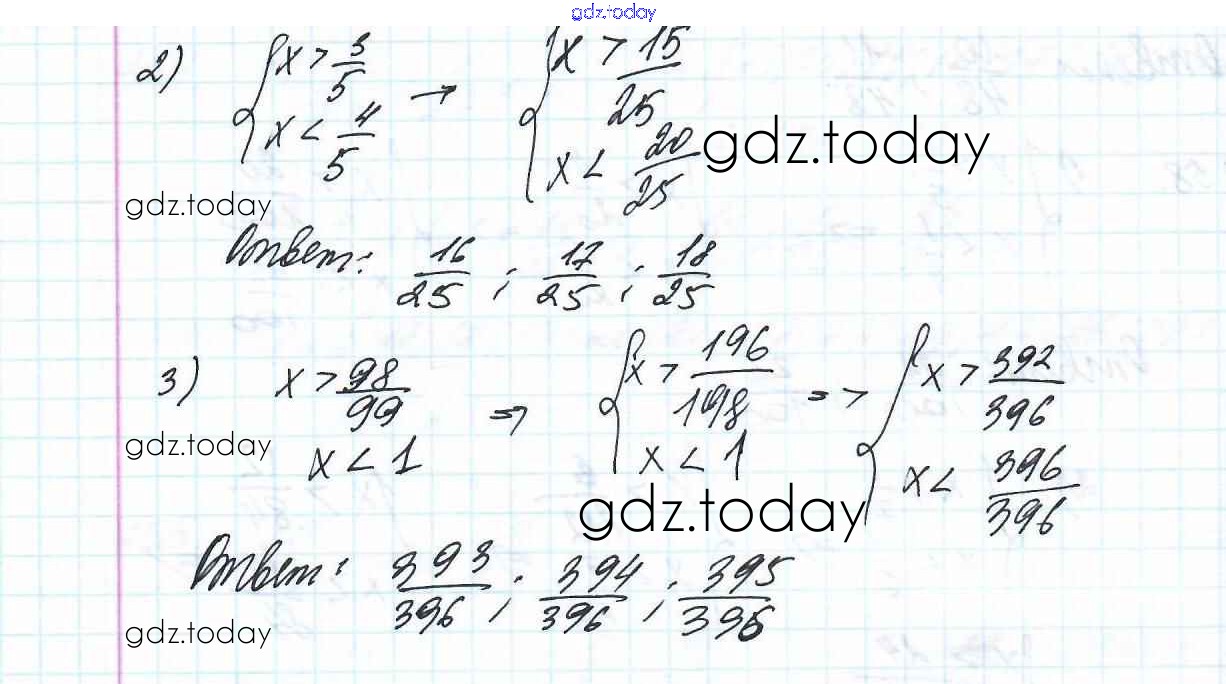 gdz.today
2) { x > 3/5 → { x > 15/25
x < 4/5 x < 20/25
gdz.today
gdz.today
Ответ: 16/25 ; 17/25 ; 18/25
3) x > 98/99 => { x > 196/198 => { x > 392/396
x < 1 x < 1 x < 396/396
gdz.today
gdz.today
Ответ: 393/396 ; 394/396 ; 395/396
gdz.today